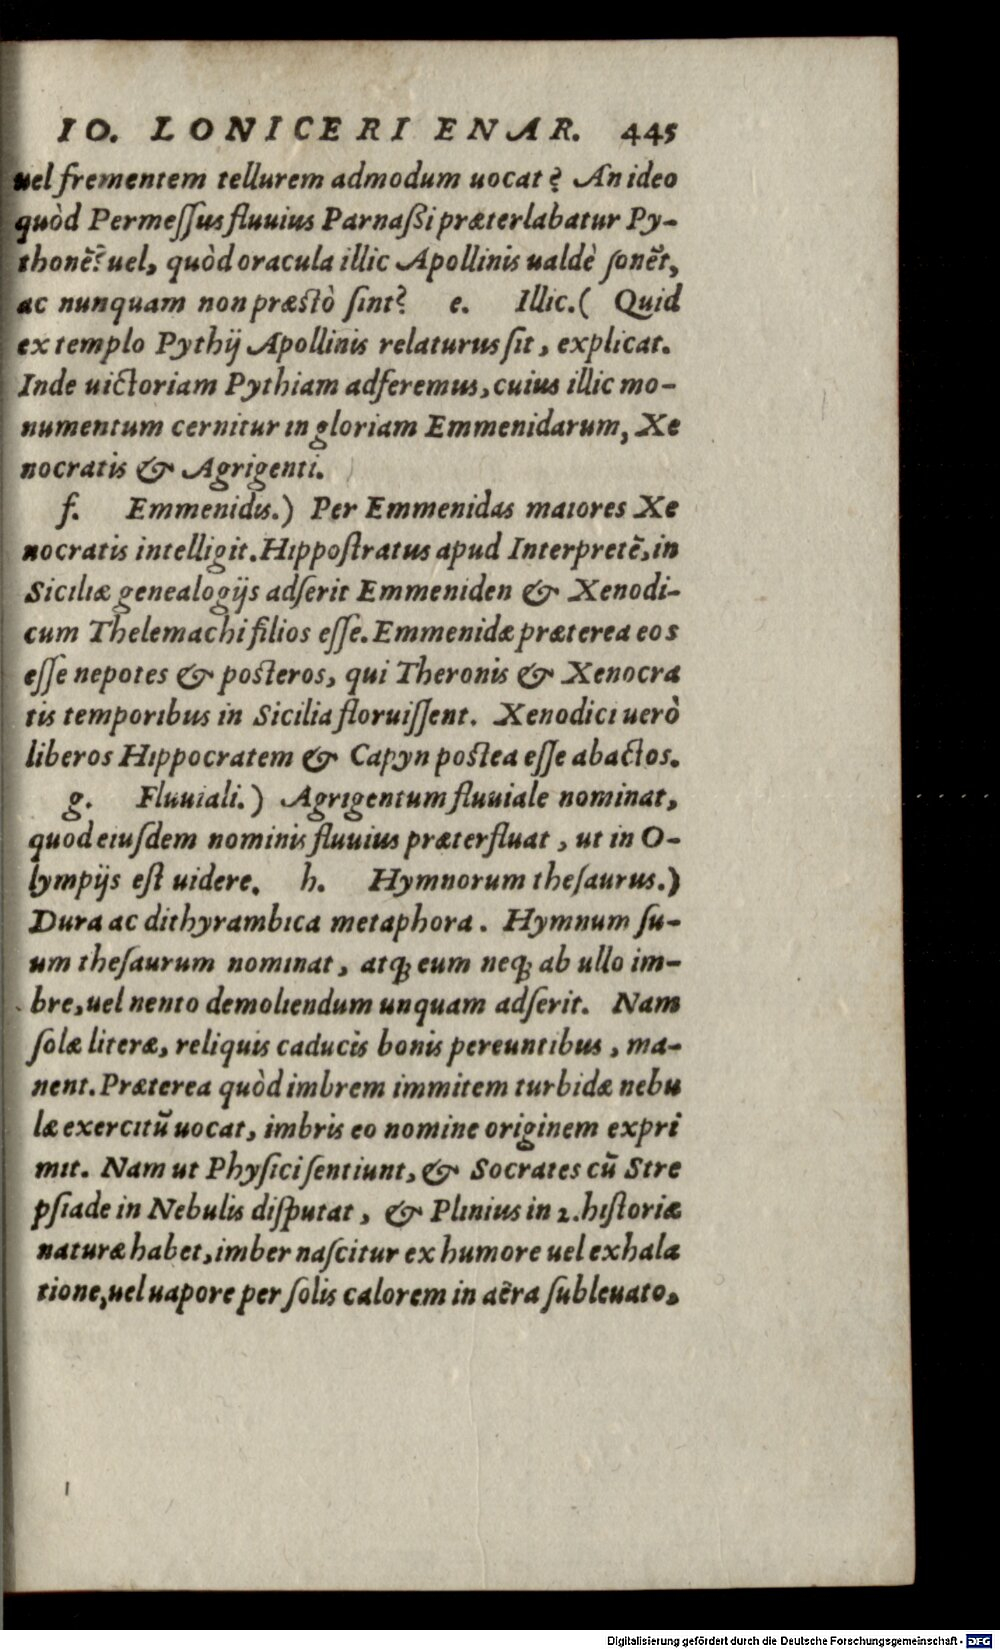 IO. LONICERI ENAR. 445
uel frementem tellurem admodum uocat? An ideo
quòd Permeſſus fluuius Parnaßi præterlabatur Py-
thonē? uel, quòd oracula illic Apollinis ualdè ſonēt,
ac nunquam non præstò ſint? e. Illic.( Quid
ex templo Pythij Apollinis relaturus ſit, explicat.
Inde uictoriam Pythiam adferemus, cuius illic mo-
numentum cernitur in gloriam Emmenidarum, Xe
nocratis & Agrigenti.
f. Emmenidis.) Per Emmenidas maiores Xe
nocratis intelligit. Hippoſtratus apud Interpretē, in
Siciliæ genealogijs adſerit Emmeniden & Xenodi-
cum Thelemachi filios eſſe. Emmenidæ præterea eos
eſſe nepotes & posteros, qui Theronis & Xenocra
tis temporibus in Sicilia floruiſſent. Xenodici uerò
liberos Hippocratem & Capyn postea eſſe abactos.
g. Fluuiali.) Agrigentum fluuiale nominat,
quod eiuſdem nominis fluuius præterfluat, ut in O-
lympijs eſt uidere. h. Hymnorum theſaurus.)
Dura ac dithyrambica metaphora. Hymnum ſu-
um theſaurum nominat, atq; eum neq; ab ullo im-
bre, uel nento demoliendum unquam adſerit. Nam
ſolæ literæ, reliquis caducis bonis pereuntibus, ma-
nent. Præterea quòd imbrem immitem turbidæ nebu
læ exercitū uocat, imbris eo nomine originem expri
mit. Nam ut Phyſici ſentiunt, & Socrates cū Stre
pſiade in Nebulis diſputat, & Plinius in 2. hiſtoriæ
naturæ habet, imber naſcitur ex humore uel exhala
tione, uel uapore per ſolis calorem in aëra ſubleuato,
Digitalisierung gefördert durch die Deutsche Forschungsgemeinschaft - DFG